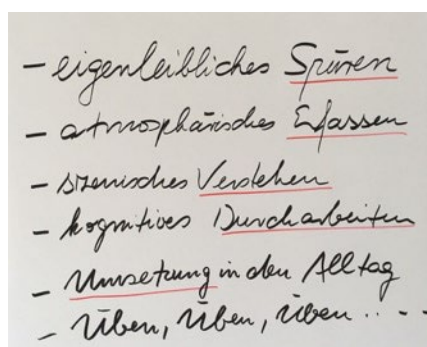 - eigenleibliches Spüren
- atmosphärisches Erfassen
- szenisches Verstehen
- kognitives Durcharbeiten
- Umsetzung in den Alltag
- Üben, Üben, üben.. --